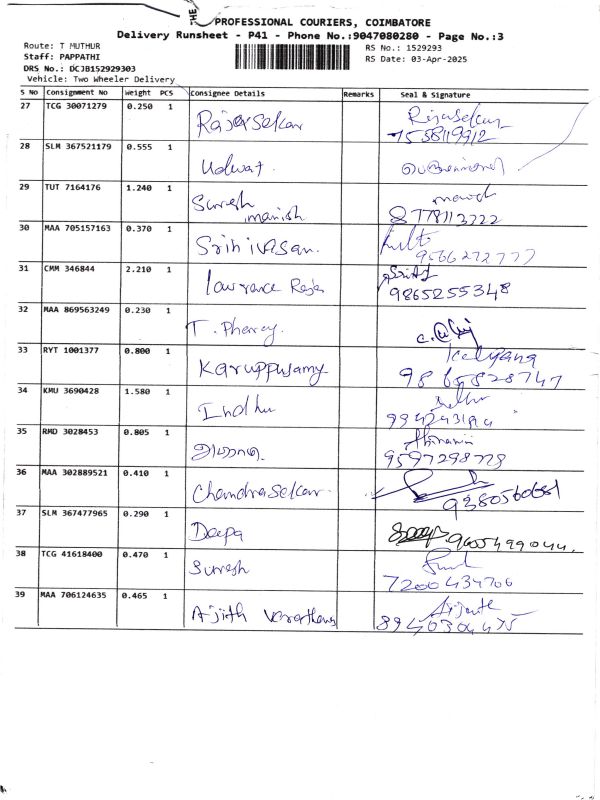 THE PROFESSIONAL COURIERS, COIMBATORE
Delivery Runsheet - P41 - Phone No.:9047080280 - Page No.:3
Route: T MUTHUR RS No.: 1529293
Staff: PAPPATHI RS Date: 03-Apr-2025
DRS No.: DCJB152929303
Vehicle: Two Wheeler Delivery
S No Consignment No Weight PCS Consignee Details Remarks Seal & Signature
27 TCG 30071279 0.250 1 Rajasekar Rajasekar
28 SLM 367521179 0.555 1 Udwat.
29 TUT 7164176 1.240 1 Suresh
manish 8778113222
30 MAA 705157163 0.370 1 Srinivasan. 9566272777
31 CMM 346844 2.210 1 lawrance Raja
9865255348
32 MAA 869563249 0.230 1 T. Pharcy.
33 RYT 1001377 0.800 1 Karuppusamy Kalyana
9865828747
34 KMU 3690428 1.580 1 Indhu
35 RMD 3028453 0.805 1
9597298778
36 MAA 302889521 0.410 1 Chandrasekar. 9380560681
37 SLM 367477965 0.290 1 Deepa 9605499044.
38 TCG 41618400 0.470 1 Suresh
7200434706
39 MAA 706124635 0.465 1 Ajith Varathan
8940304475